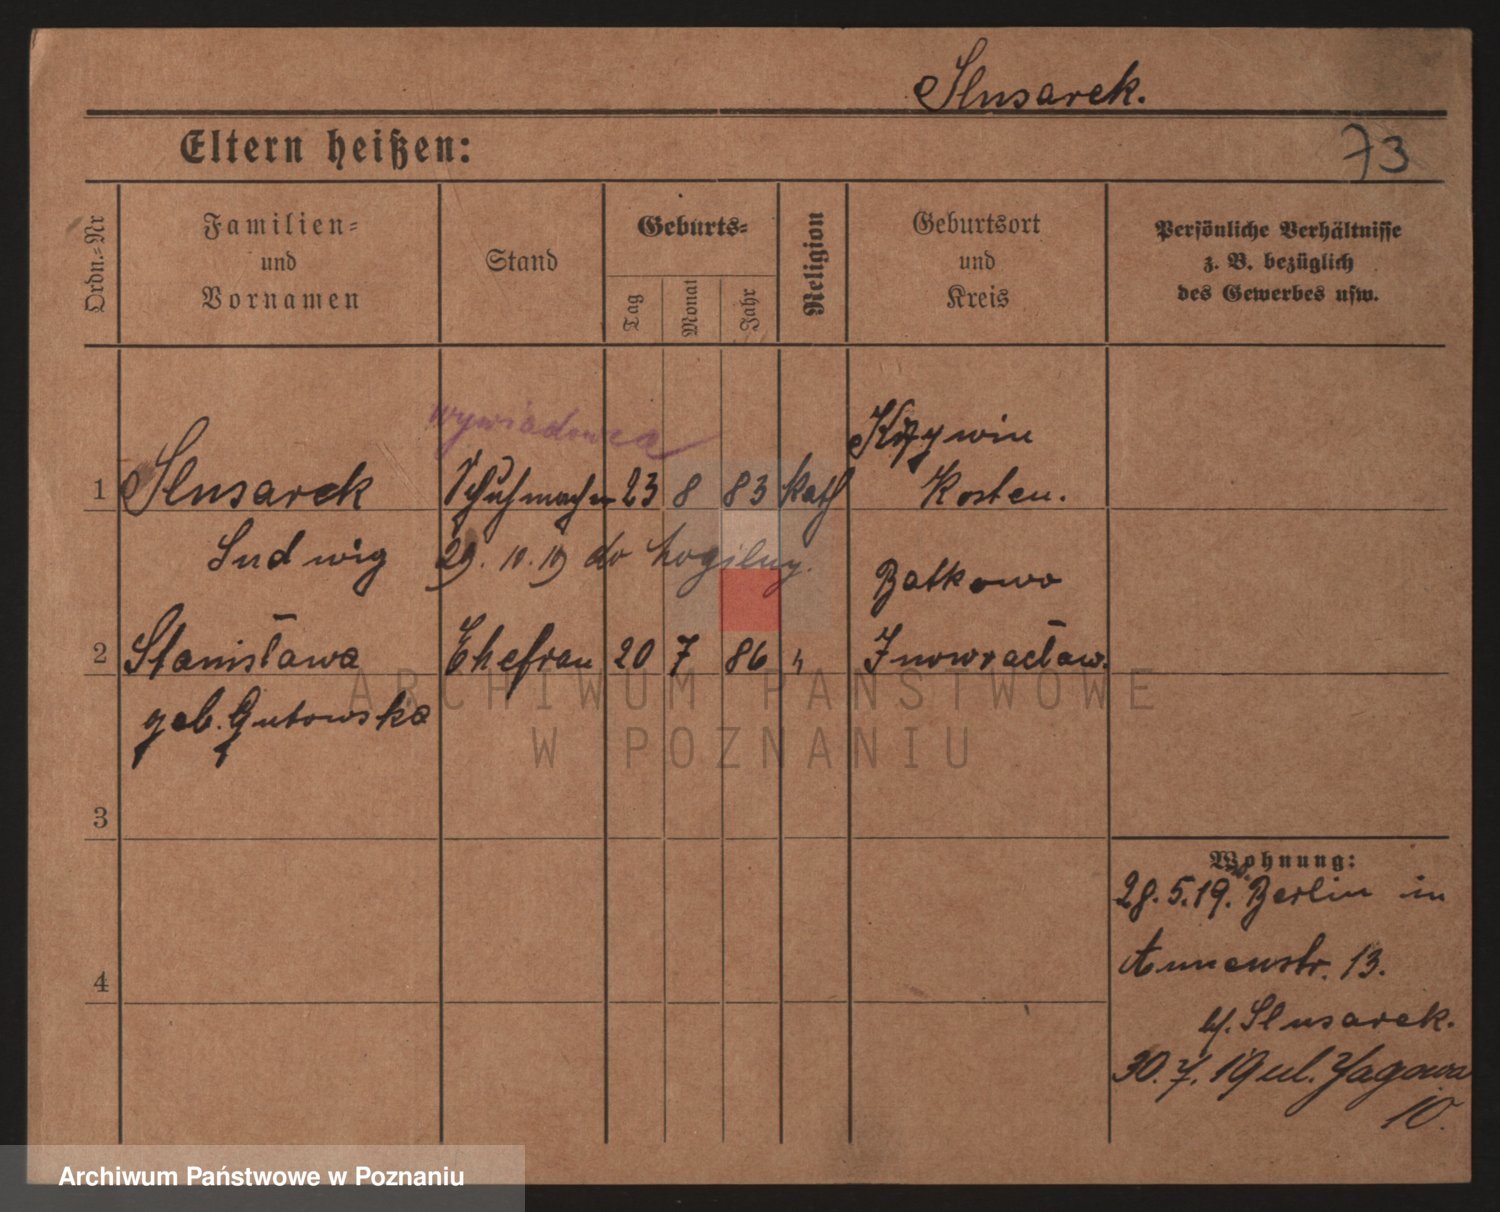 Slusarek.
Eltern heißen:
73
Ordn.-Nr
Familien-
und
Vornamen
Stand
Geburts-
Tag
Monat
Jahr
Religion
Geburtsort
und
Kreis
Persönliche Verhältnisse
z. B. bezüglich
des Gewerbes usw.
wywiadowca
Krzywin
1 Slusarek Schuhmacher 23 8 83 kath Kosten.
Ludwig 29. 10. 19 do Mogilny.
Batkowo
2 Stanisława Ehefrau 20 7 86 " Inowracław.
geb. Gutowska
3
4
Wohnung:
28. 5. 19. Berlin in
Annenstr. 13.
b/. Slusarek.
30. 7. 19 ul. Jagowa
10.
ARCHIWUM PAŃSTWOWE
W POZNANIU
Archiwum Państwowe w Poznaniu